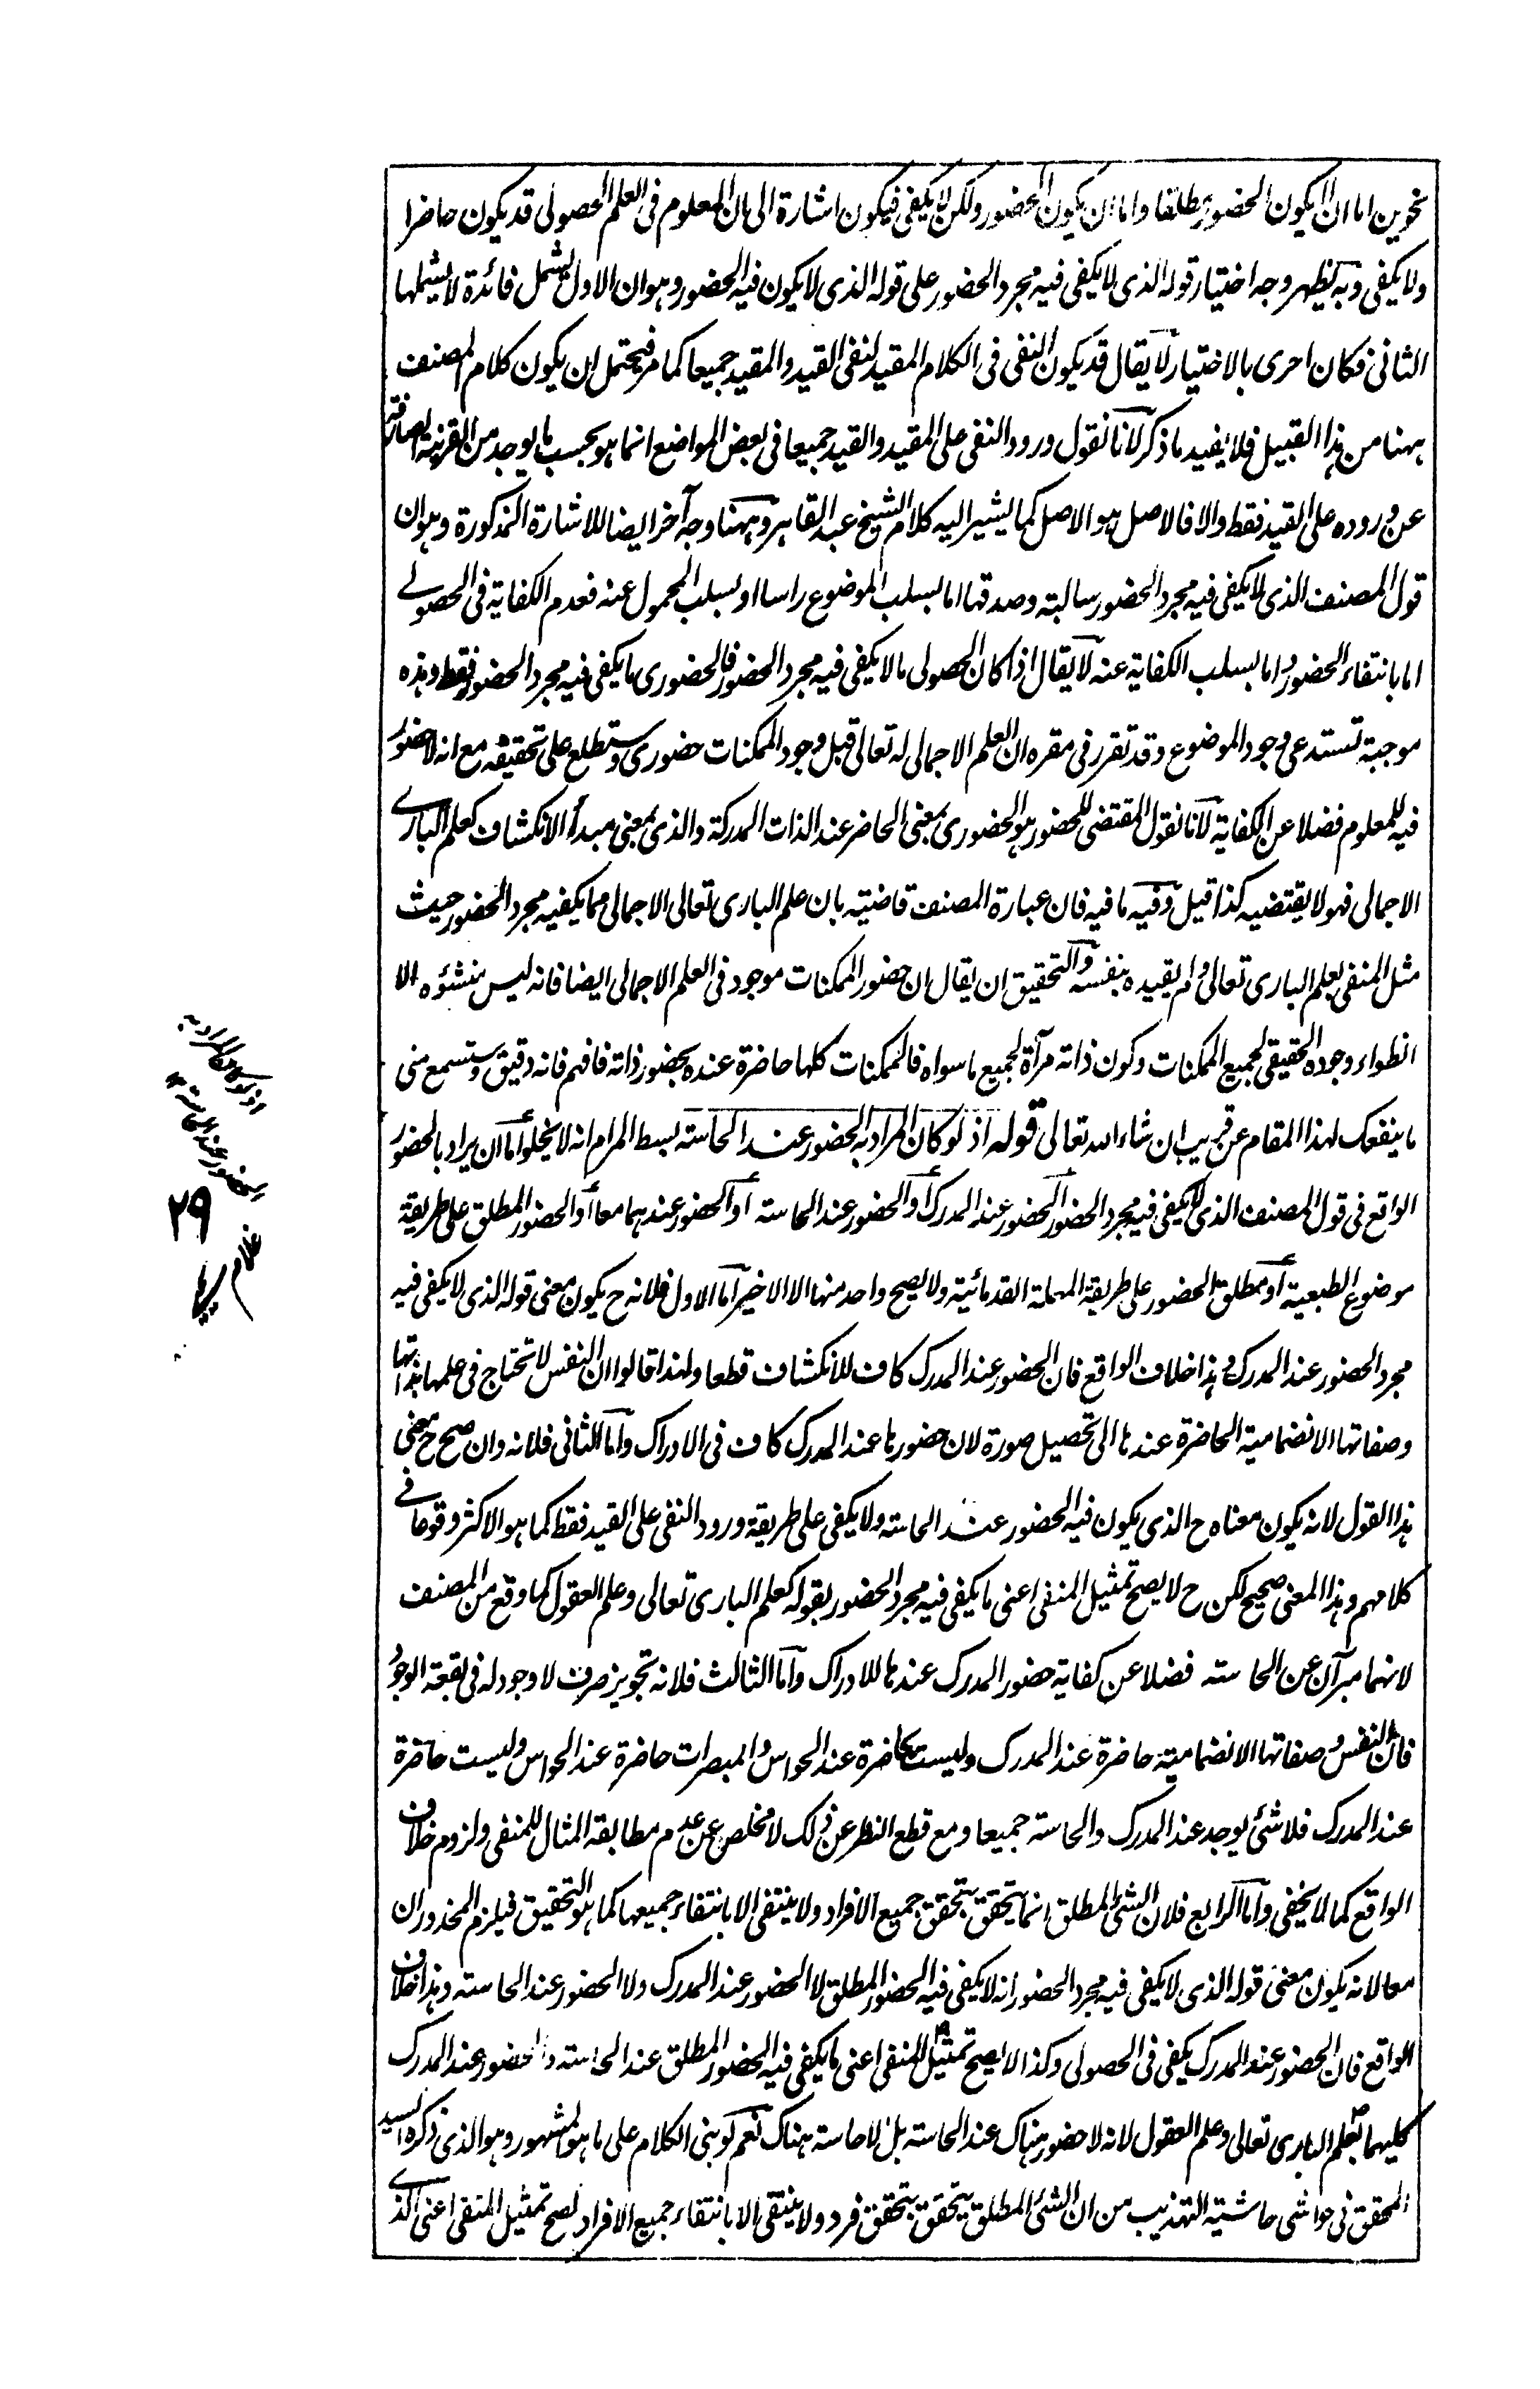 نحوين اما ان لا يكون الحضور مطلقا واما ان يكون الحضور ولكن لا يكفي فيكون اشارة الى ان المعلوم في العلم الحصولي قد يكون حاضرا
ولا يكفي وبه يظهر وجه اختيار قوله الذي لا يكفي فيه مجرد الحضور على قوله الذي لا يكون فيه الحضور وهو ان الاول يشمل فائدة لا يشملها
الثاني فكان احرى بالاختيار لا يقال قد يكون النفي في الكلام المقيد لنفي القيد والمقيد جميعا كما مر فيحتمل ان يكون كلام المصنف
ههنا من هذا القبيل فلا يفيد ما ذكر لانا نقول ورود النفي على المقيد والقيد جميعا في بعض المواضع انما هو بحسب ما يوجد من القرينة الصارفة
عن وروده على القيد فقط والا فالاصل هو الاصل كما يشير اليه كلام الشيخ عبد القاهر وههنا وجه آخر ايضا للاشارة المذكورة وهو ان
قول المصنف الذي لا يكفي فيه مجرد الحضور سالبته وصدقها اما بسلب الموضوع راسا او بسلب المحمول عنه فعدم الكفاية في الحصولي
اما بانتفاء الحضور واما بسلب الكفاية عنه لا يقال اذا كان الحصولي ما لا يكفي فيه مجرد الحضور فالحضوري ما يكفي فيه مجرد الحضور فقط وهذه
موجبة تستدعي وجود الموضوع وقد تقرر في مقره ان العلم الاجمالي له تعالى قبل وجود الممكنات حضوري وستطلع على تحقيقه مع انه لا حضور
فيه للمعلوم فضلا عن الكفاية لانا نقول المقتضي للحضور هو الحضوري بمعنى الحاضر عند الذات المدركة والذي بمعنى مبدأ الانكشاف كعلم الباري
الاجمالي فهو لا يقتضيه كذا قيل وفيه ما فيه فان عبارة المصنف قاضية بان علم الباري تعالى الاجمالي مما يكفيه مجرد الحضور حيث
مثل المنفي بعلم الباري تعالى ولم يقيده بنفسه والتحقيق ان يقال ان حضور الممكنات موجود في العلم الاجمالي ايضا فانه ليس منشؤه الا
انطواء وجوده الحقيقي لجميع الممكنات وكون ذاته مرآة لجميع ما سواه فالممكنات كلها حاضرة عنده بحضور ذاته فافهم فانه دقيق وستسمع مني
ما ينفعك لهذا المقام عن قريب ان شاء الله تعالى قوله اذ لو كان المراد به الحضور عند الحاسة بسط المرام انه لا يخلو اما ان يراد بالحضور
الواقع في قول المصنف الذي لا يكفي فيه مجرد الحضور الحضور عند المدرك أو الحضور عند الحاسة أو الحضور عندهما معا أو الحضور المطلق على طريقة
موضوع الطبعية أو مطلق الحضور على طريقة المهملة القدمائية ولا يصح واحد منها الا الاخير أما الاول فلانه ح يكون معنى قوله الذي لا يكفي فيه
مجرد الحضور عند المدرك وهذا خلاف الواقع فان الحضور عند المدرك كاف للانكشاف قطعا ولهذا قالوا ان النفس لا تحتاج في علمها بذاتها
وصفاتها الانضمامية الحاضرة عندها الى تحصيل صورة لان حضورها عند المدرك كاف في الادراك واما الثاني فلانه وان صح ح معنى
هذا القول لانه يكون معناه ح الذي يكون فيه الحضور عند الحاسة ولا يكفي على طريقة ورود النفي على القيد فقط كما هو الاكثر وقوعا في
كلامهم وهذا المعنى صحيح لكن ح لا يصح تمثيل المنفي اعني ما يكفي فيه مجرد الحضور بقوله كعلم الباري تعالى وعلم العقول كما وقع من المصنف
لانهما مبرآن عن الحاسة فضلا عن كفاية حضور المدرك عندها للادراك واما الثالث فلانه تجويز صرف لا وجود له في بقعة الوجود
فان النفس وصفاتها الانضمامية حاضرة عند المدرك وليست بحاضرة عند الحواس والمبصرات حاضرة عند الحواس وليست حاضرة
عند المدرك فلا شئ يوجد عند المدرك والحاسة جميعا ومع قطع النظر عن ذلك لا مخلص عن عدم مطابقة المثال للمنفي ولزوم خلاف
الواقع كما لا يخفى واما الرابع فلان الشئ المطلق انما يتحقق بتحقق جميع الافراد ولا ينتفي الا بانتفاء جميعها كما هو التحقيق فيلزم المحذوران
معا لانه يكون معنى قوله الذي لا يكفي فيه مجرد الحضور انه لا يكفي فيه الحضور المطلق لا الحضور عند المدرك ولا الحضور عند الحاسة وهذا خلاف
الواقع فان الحضور عند المدرك يكفي في الحصولي وكذا لا يصح تمثيل المنفي اعني ما يكفي فيه الحضور المطلق عند الحاسة والحضور عند المدرك
كليهما بعلم الباري تعالى وعلم العقول لانه لا حضور هناك عند الحاسة بل لا حاسة هناك نعم لو بني الكلام على ما هو المشهور وهو الذي ذكره السيد
المحقق في حواشي حاشية التهذيب من ان الشئ المطلق يتحقق بتحقق فرد ولا ينتفي الا بانتفاء جميع الافراد لصح تمثيل المنفي اعني الذي
اذ لو كان المراد به
الحضور عند الحاسة
٢٩
غلام